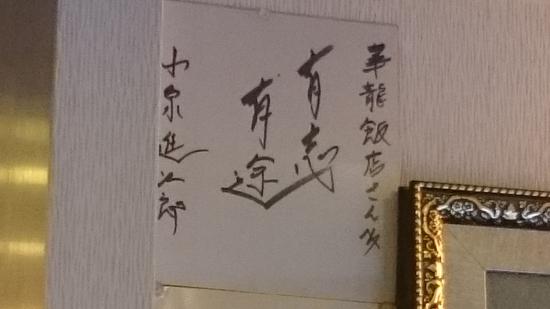 華龍飯店さん江
有志
有途
小泉進次郎